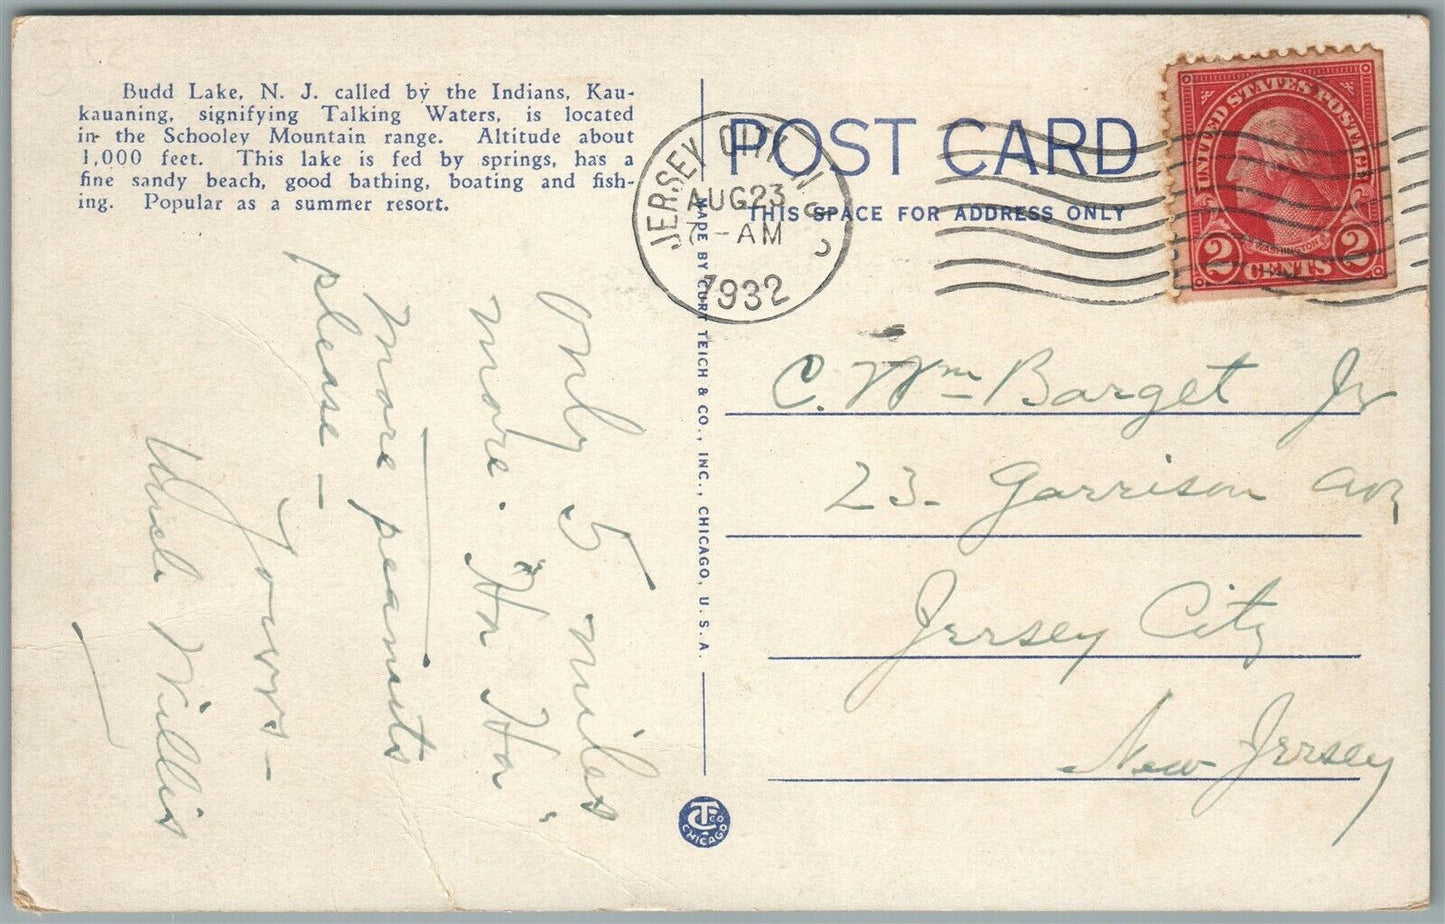 Budd Lake, N. J. called by the Indians, Kau-
kauaning, signifying Talking Waters, is located
in the Schooley Mountain range. Altitude about
1,000 feet. This lake is fed by springs, has a
fine sandy beach, good bathing, boating and fish-
ing. Popular as a summer resort.
Only 5 miles
more. Ha Ha.
more peanuts
please –
Yours –
Uncle Willis
MADE BY CURT TEICH & CO., INC., CHICAGO, U. S. A.
CT CO
CHICAGO
POST CARD
THIS SPACE FOR ADDRESS ONLY
JERSEY CITY, N.J.
AUG 23
7 - AM
1932
UNITED STATES POSTAGE
WASHINGTON
2 CENTS 2
C. Wm Barget Jr
23. Garrison Ave
Jersey City
New Jersey